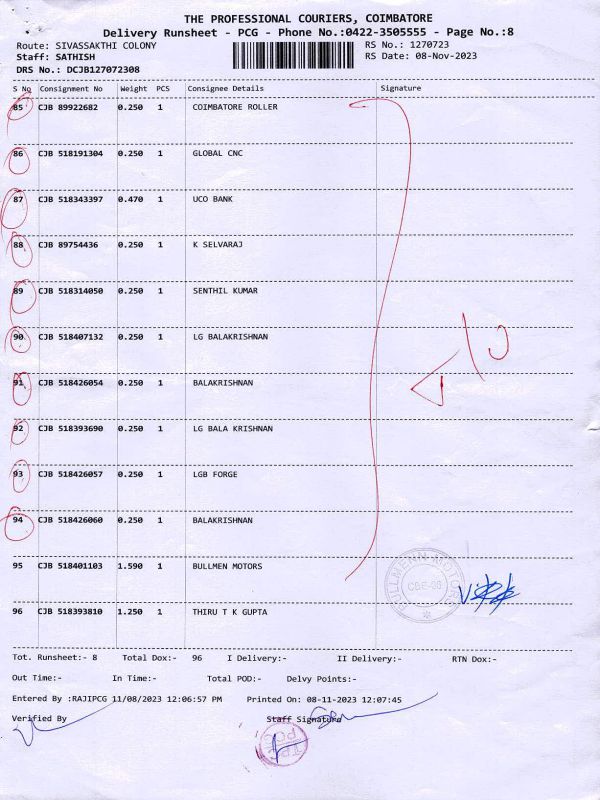 THE PROFESSIONAL COURIERS, COIMBATORE
Delivery Runsheet - PCG - Phone No.:0422-3505555 - Page No.:8
Route: SIVASSAKTHI COLONY RS No.: 1270723
Staff: SATHISH RS Date: 08-Nov-2023
DRS No.: DCJB127072308
S No Consignment No Weight PCS Consignee Details Signature
85 CJB 89922682 0.250 1 COIMBATORE ROLLER
86 CJB 518191304 0.250 1 GLOBAL CNC
87 CJB 518343397 0.470 1 UCO BANK
88 CJB 89754436 0.250 1 K SELVARAJ
89 CJB 518314050 0.250 1 SENTHIL KUMAR
90 CJB 518407132 0.250 1 LG BALAKRISHNAN
91 CJB 518426054 0.250 1 BALAKRISHNAN
92 CJB 518393690 0.250 1 LG BALA KRISHNAN
93 CJB 518426057 0.250 1 LGB FORGE
94 CJB 518426060 0.250 1 BALAKRISHNAN
95 CJB 518401103 1.590 1 BULLMEN MOTORS
BULLMENN MOTORS
96 CJB 518393810 1.250 1 THIRU T K GUPTA
Tot. Runsheet:- 8 Total Dox:- 96 I Delivery:- II Delivery:- RTN Dox:-
Out Time:- In Time:- Total POD:- Delvy Points:-
Entered By :RAJIPCG 11/08/2023 12:06:57 PM Printed On: 08-11-2023 12:07:45
Verified By Staff Signature